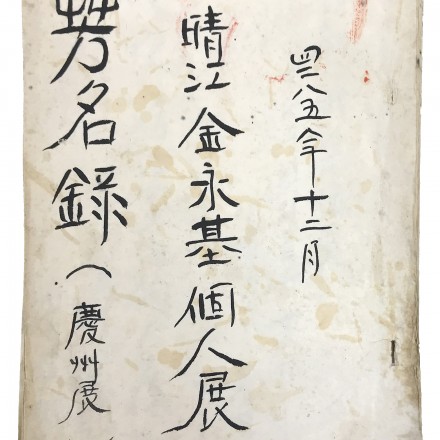 四二八五年十二月
晴江金永基個人展
芳名錄(慶州展